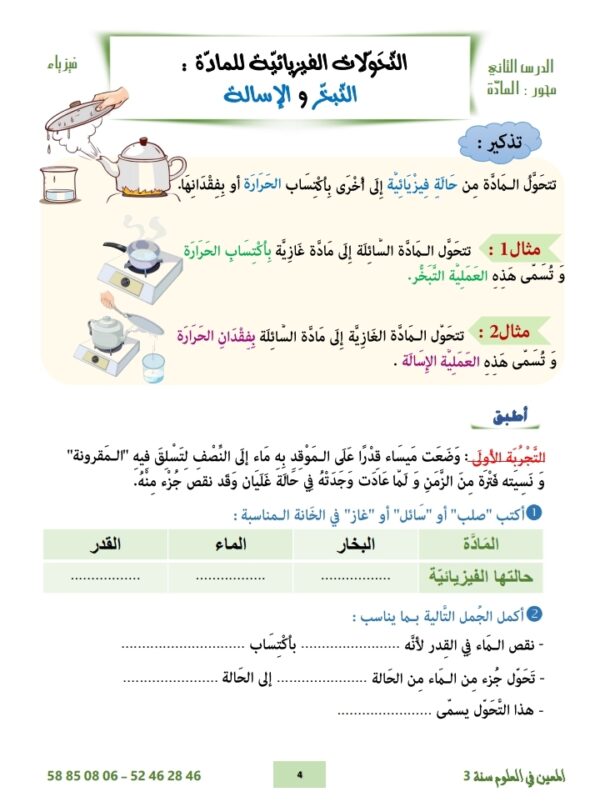 الدرس الثاني
محور : المادّة
التّحوّلات الفيزيائيّة للمادّة :
التّبخّر و الإسالة
فيزياء
تذكير :
تتحَوَّلُ الـمَادَّة مِن حَالَةٍ فِيْزيَائِيَّة إِلَى أُخْرَى بِٱكْتِسَاب الحَرَارَة أو بِفِقْدَانِهَا.
مثال1 : تتحَوَّل الـمَادَّة السَّائِلَة إِلَى مَادَّة غَازِيَّة بِٱكْتِسَابِ الحَرَارَة
وَ تُسَمَّى هَذِهِ العَمَلِيَّة التَّبَخُّر.
مثال2 : تتحَوَّل الـمَادَّة الغَازِيَّة إِلَى مَادَّة السَّائِلَة بِفِقْدَانِ الحَرَارَة
وَ تُسَمَّى هَذِهِ العَمَلِيَّة الإِسَالَة .
أطبق
التَّجْرُبَة الأولَى: وَضَعَت مَيسَاء قدْرًا عَلَى المَوْقِد بِهِ مَاء إِلَى النِّصْفِ لِتَسْلِقَ فِيهِ "الـمقرونة"
وَ نَسِيَته فَتْرة مِنَ الزَّمَنِ وَ لَمَّا عَادَت وَجَدَتْهُ فِي حَالَة غَلَيَان وَقد نقص جُزْء مِنْهُ.
❶ أكتب "صلب" أو "سَائل" أو "غاز" في الخَانة المناسبة :
المَادَّة البخار الماء القدر
حالتها الفيزيائيّة .................. .................. ..................
❷ أكمل الجُمل التَّالية بـما يناسب :
- نقص الـمَاء فِي القِدر لأنَّه .......................... بٱكْتِسَاب ..........................
- تَحَوّل جُزء مِن الـمَاء مِن الحَالة ........................ إلى الحَالة ........................
- هذا التَّحَوّل يسمّى ........................
المعين في العلوم سنة 3
4
58 85 08 06 – 52 46 28 46